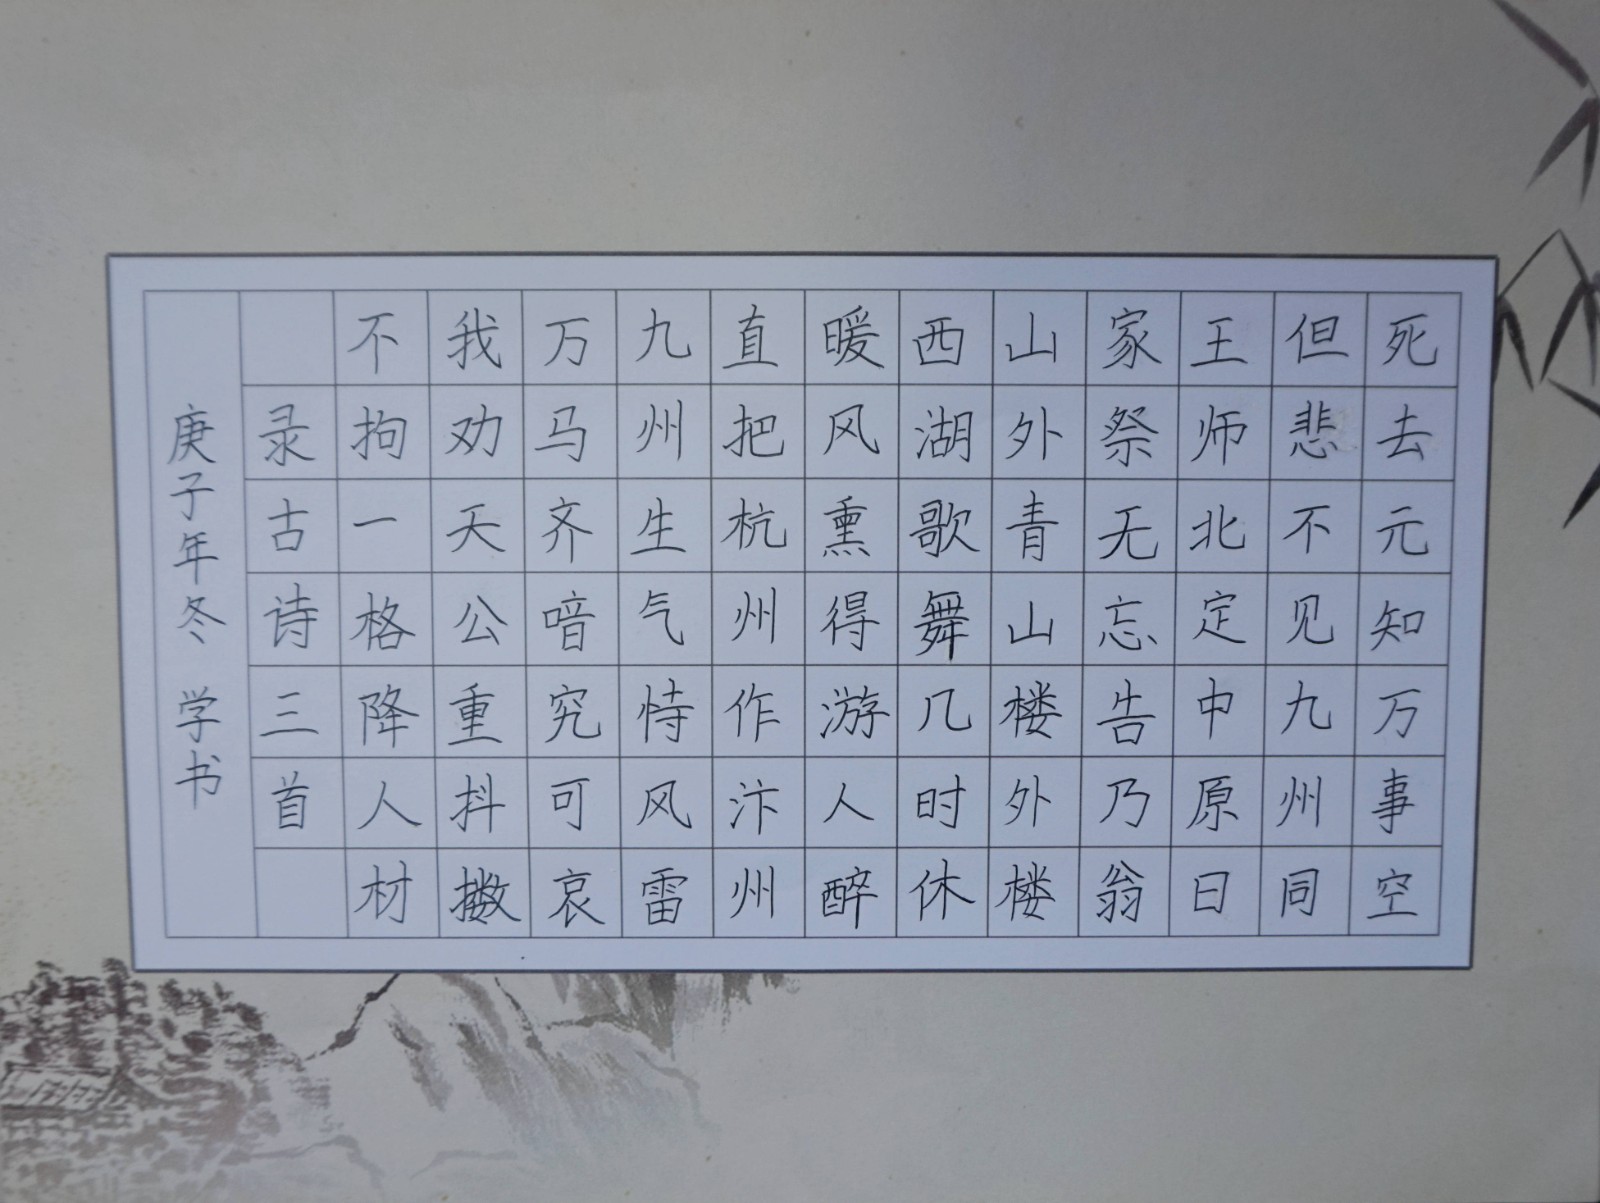 死去元知万事空
但悲不见九州同
王师北定中原日
家祭无忘告乃翁
山外青山楼外楼
西湖歌舞几时休
暖风熏得游人醉
直把杭州作汴州
九州生气恃风雷
万马齐喑究可哀
我劝天公重抖擞
不拘一格降人材
录古诗三首
庚子年冬 学书